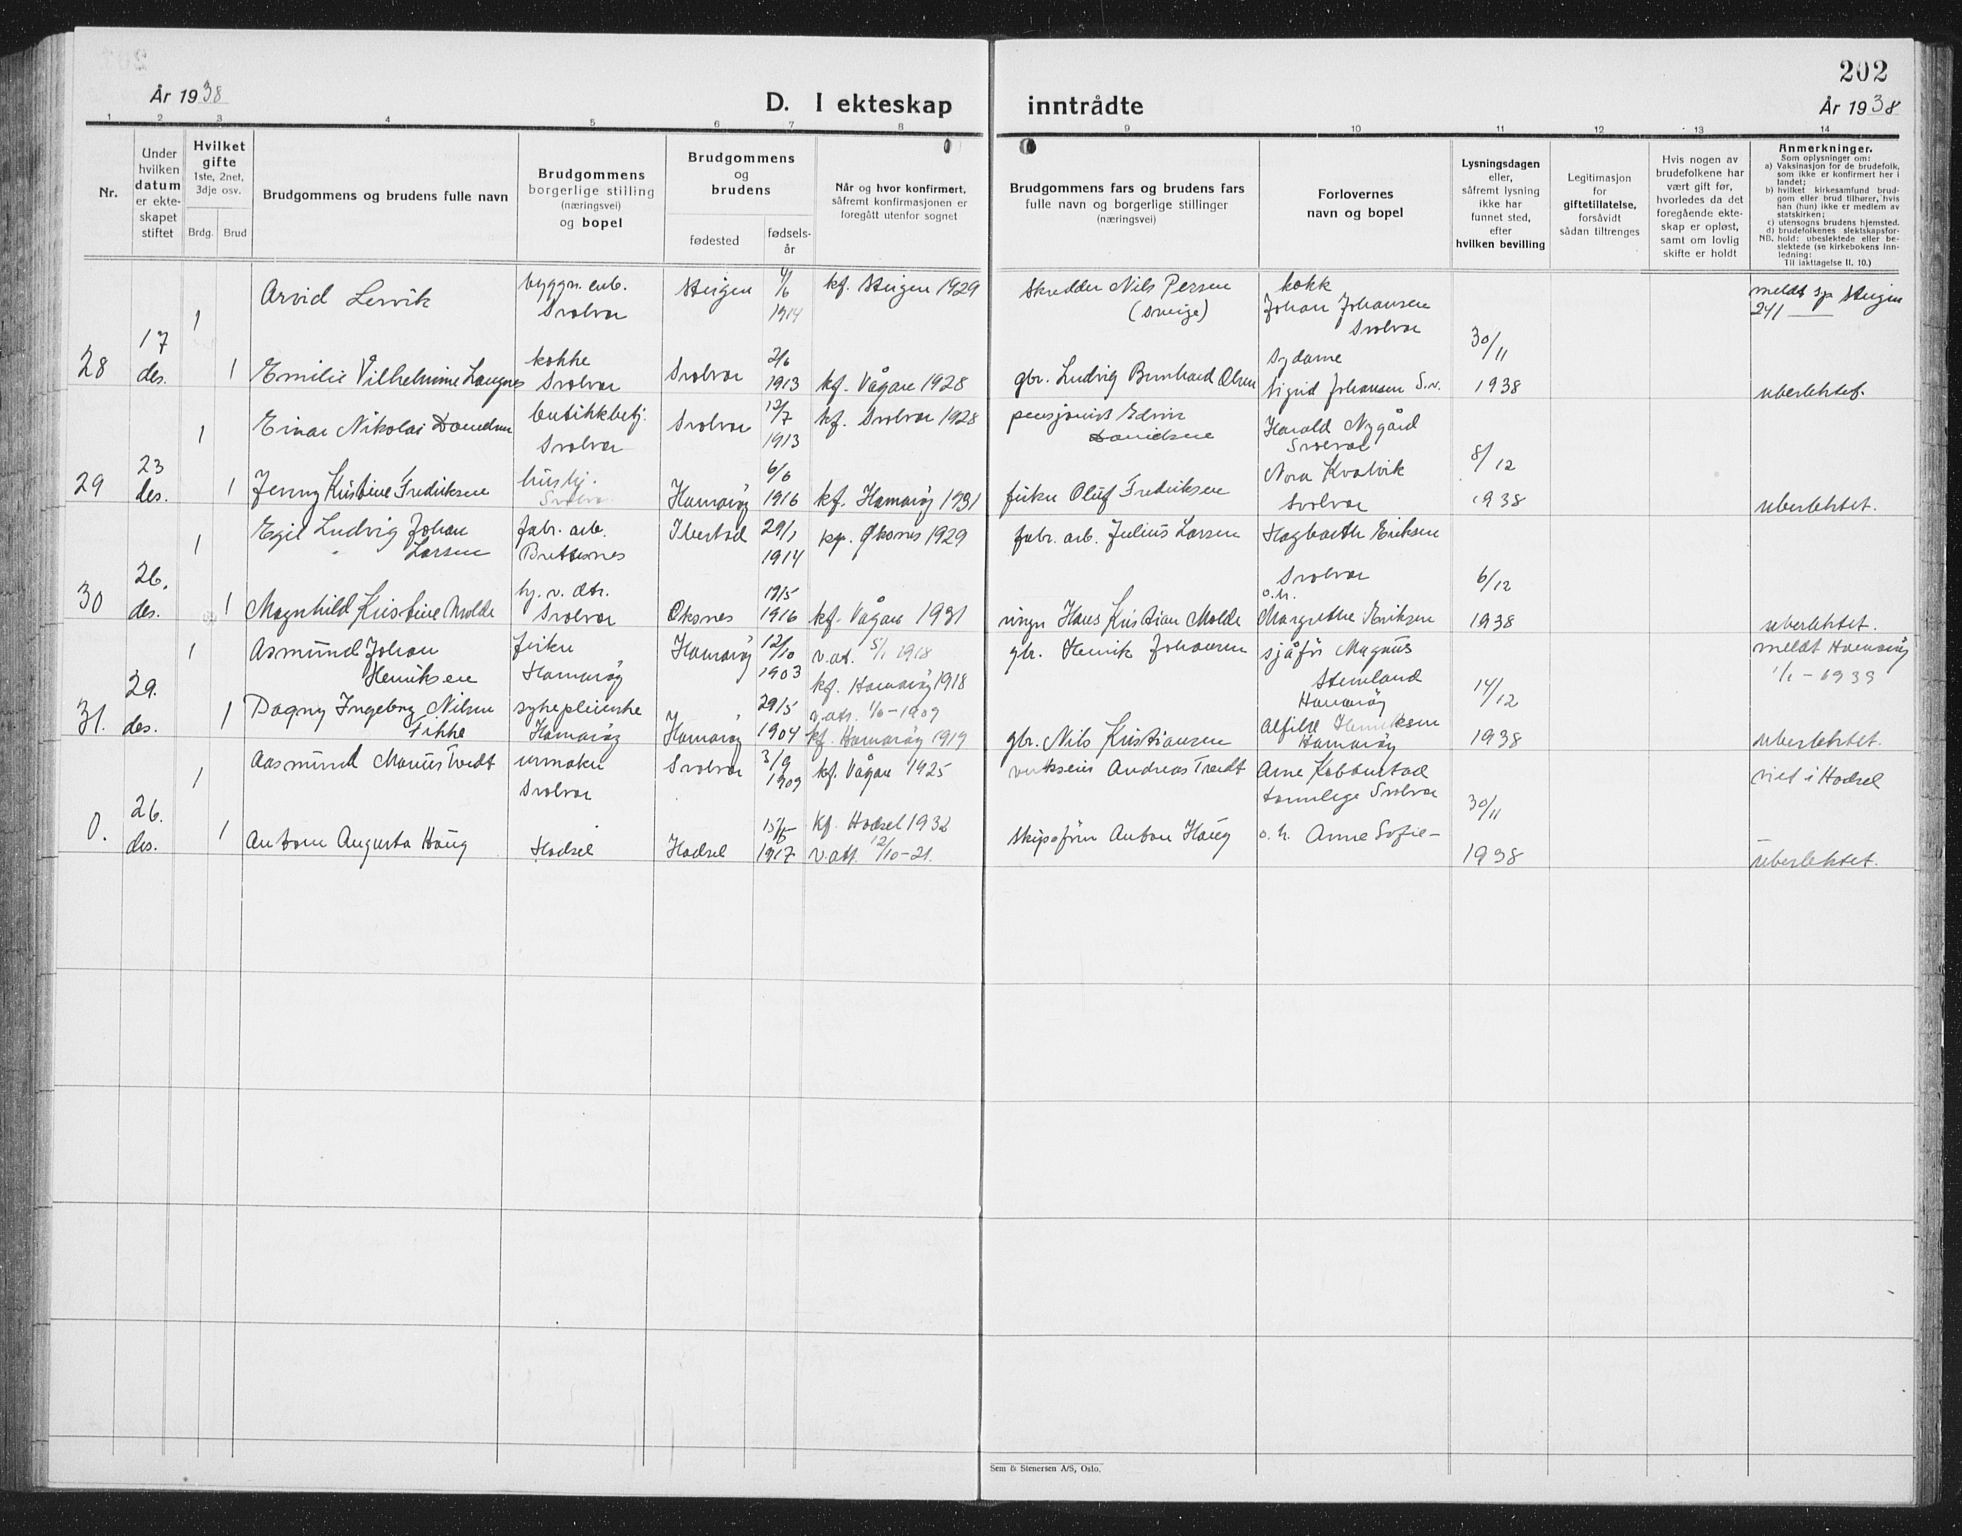 202
År 1938
D. I ekteskap inntrådte
År 1938
1 2 3 4 5 6 7 8 9 10 11 12 13 14
Nr.
Under
hvilken
datum
er ekte-
skapet
stiftet
Hvilket
gifte
1ste, 2net,
3dje osv.
Brdg. Brud
Brudgommens og brudens fulle navn
Brudgommens
borgerlige stilling
(næringsvei)
og bopel
Brudgommens
og
brudens
fødested
fødsels-
år
Når og hvor konfirmert,
såfremt konfirmasjonen er
foregått utenfor sognet
Brudgommens fars og brudens fars
fulle navn og borgerlige stillinger
(næringsvei)
Forlovernes
navn og bopel
Lysningsdagen
eller,
såfremt lysning
ikke har
funnet sted,
efter
hvilken bevilling
Legitimasjon
for
giftetillatelse,
forsåvidt
sådan tiltrenges
Hvis nogen av
brudefolkene har
vært gift før,
hvorledes da det
foregående ekte-
skap er opløst,
samt om lovlig
skifte er holdt
Anmerkninger.
Som oplysninger om:
a) Vaksinasjon for de brudefolk,
som ikke er konfirmert her i
landet;
b) hvilket kirkesamfund brud-
gom eller brud tilhører, hvis
han (hun) ikke er medlem av
statskirken;
c) utensogns brudens hjemsted.
d) brudefolkenes slektskapsfor-
NB. hold: ubeslektede eller be-
slektede (se kirkebokens inn-
ledning:
Til iakttagelse II. 10.)
28 17 des.
1 Arvid Lervik byggn. arb. Svolvær Steigen 4/6 1914 kf. Steigen 1929 Skredder Nils Persen (Sverige) kokk Johan Johansen Svolvær 30/11 1938 meldt sp Steigen 24/1
1 Emilie Vilhelmine Langnes kokke Svolvær Svolvær 2/6 1913 kf. Vågan 1928 gbr. Ludvig Bernhard Olsen Sydame Sigrid Johansen S.v. ubeslektet.
29 23 des.
1 Einar Nikolai Danielsen butikkbetj. Svolvær Svolvær 12/7 1913 kf. Svolvær 1928 pensjonist Edvin Danielsen Harald Nygård Svolvær 8/12 1938
1 Jenny Kristine Fredriksen husbj. Svolvær Hamarøy 6/6 1916 kf. Hamarøy 1931 fisker Oluf Fredriksen Nora Kvalvik Svolvær ubeslektet.
30 26. des.
1 Egil Ludvig Johan Larsen fabr. arb. Brettesnes Ibestad 29/1 1914 kf. Øksnes 1929 fabr. arb. Julius Larsen Hagbarth Eriksen Svolvær 6/12 1938
1 Magnhild Kristine Molde hj. v. dtr. Svolvær Øksnes 19/5 1916 kf. Vågan 1931 Hans Kristian Molde o.h. Margrethe Eriksen ubeslektet.
31. 29. des.
1 Asmund Johan Henriksen fisker Hamarøy Hamarøy 12/10 1903 v. at. 5/1 1918 kf. Hamarøy 1918 gbr. Henrik Johansen sjåfør Magnus Stenland Hamarøy 14/12 1938 meldt Hamarøy 1/1 - 1939
1 Dagny Ingeborg Nilsen Fikke sykepleierske Hamarøy Hamarøy 29/5 1904 v. att. 1/6-1909 kf. Hamarøy 1919 gbr. Nils Kristiansen Alfild Henriksen Hamarøy ubeslektet.
0. 26. des.
1 Aasmund Marius Tvedt urmaker Svolvær Svolvær 3/9 1909 kf. Vågan 1925 verkseier Andreas Tvedt Arne Kabbestad tannlege Svolvær 30/11 1938 viet i Hadsel
1 Antonie Augusta Haug Hadsel Hadsel 15/5 1917 Kf. Hadsel 1932 v. att. 12/10-21. Skipsfører Anton Haug o. h. Anne Sofie - ubeslektet.
Sem & Stenersen A/S, Oslo.